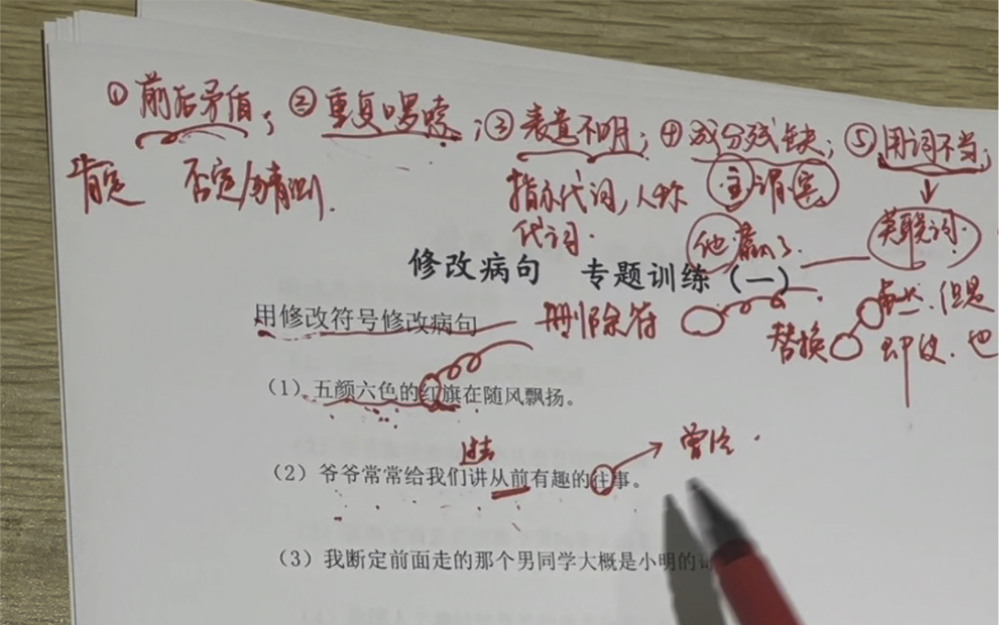 ①前后矛盾，②重复啰嗦；③表意不明；④成分残缺；⑤用词不当；
肯定 否定/猜测.
指示代词，人称 主谓宾
代词. 他赢了. 关联词.
修改病句 专题训练（一）
用修改符号修改病句 删除符 但是
替换 即使.也
（1）五颜六色的红旗在随风飘扬。
过去 曾经.
（2）爷爷常常给我们讲从前有趣的往事。
（3）我断定前面走的那个男同学大概是小明的